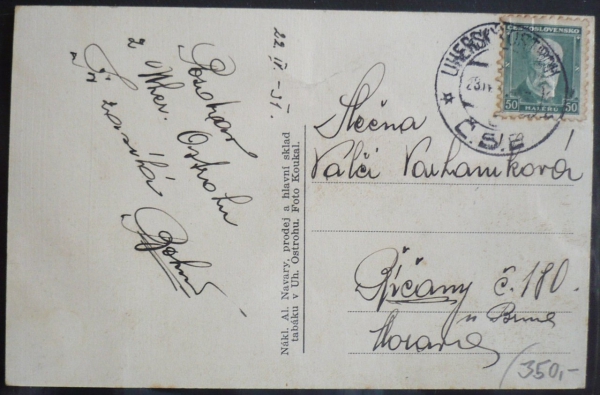 22. IV. - 31.
Pozdrav
z Uher. Ostrohu
Ti zasílá
Nákl. Al. Navary, prodej a hlavní sklad
tabáku v Uh. Ostrohu. Foto Koukal.
UHERSKÝ OSTROH
Č.S.R.
ČESKOSLOVENSKO
50 50
HALÉŘŮ
Slečna
Valči Vaxhaníková
Říčany č. 180.
u Brna
Morava
350,-